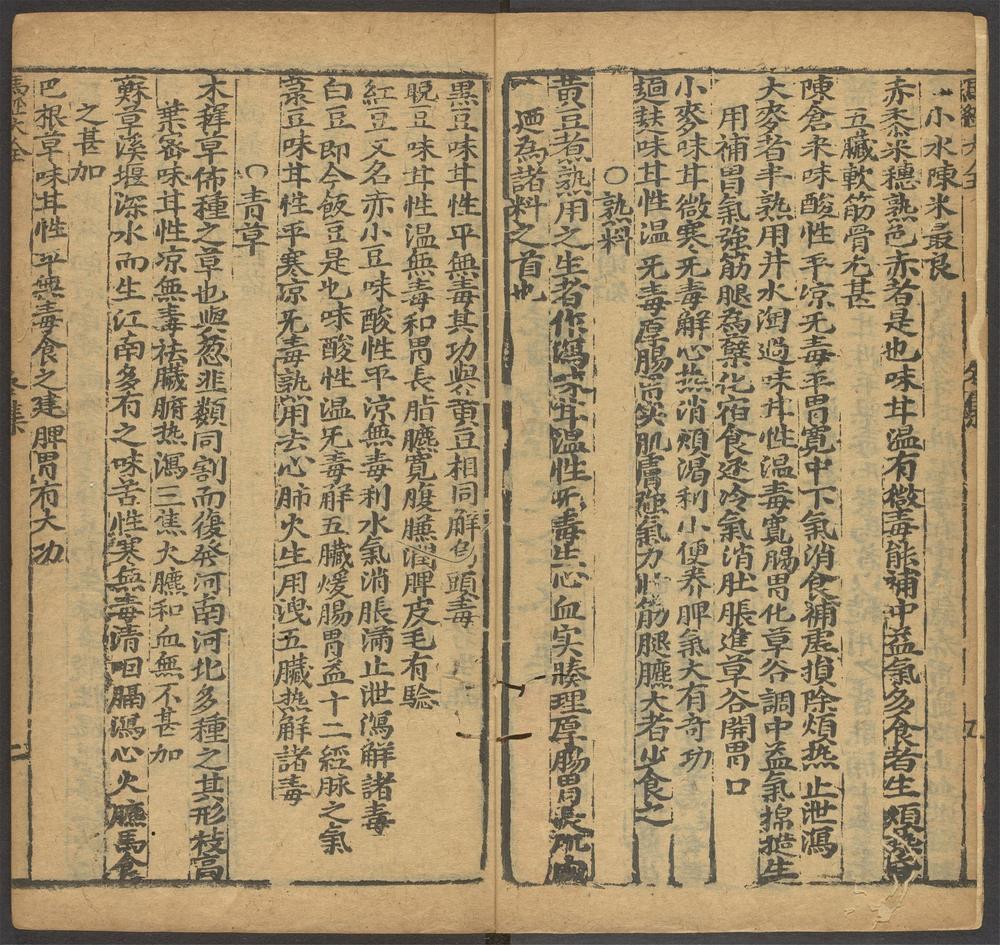 小水陳米最良
赤黍米穗熟色赤者是也味甘温有微毒能補中益氣多食者生煩熱
五臟軟筋骨尤甚
陳倉米味酸性平凉无毒平胃寬中下氣消食補虛損除煩热止泄瀉
大麥者半熟用井水淘過味甘性温毒寬腸胃化草谷調中益氣
用補胃氣強筋腿為糵化宿食逐冷氣消肚脹進草谷開胃口
小麥味甘微寒无毒解心热消煩渴利小便养脾氣大有奇功
麸味甘性温无毒厚腸胃实肌膚強氣力壯筋腿臕大者少食之
○熟料
黃豆煮熟用之生者作瀉味甘温性无毒生心血实腠理厚腸胃長肌肉
廼為諸料之首也
黑豆味甘性平無毒其功與黃豆相同解頭毒
豌豆味甘性温無毒和胃長脂臕寬腹臁潤脾皮毛有驗
紅豆又名赤小豆味酸性平凉無毒利水氣消脹滿止泄瀉解諸毒
白豆即今飯豆是也味酸性温无毒解五臟煖腸胃益十二經脉之氣
菉豆味甘性平寒凉无毒熟用去心肺火生用洩五臟热解諸毒
○青草
木稺草佈種之草也與葱韭類同割而復發河南河北多種之其形枝高
葉密味甘性凉無毒祛臟腑热瀉三焦火臕和血無不甚加
蘇草溪堰深水而生江南多有之味苦性寒無毒清咽膈瀉心火臕馬食
之甚加
巴根草味甘性平無毒食之建脾胃有大功